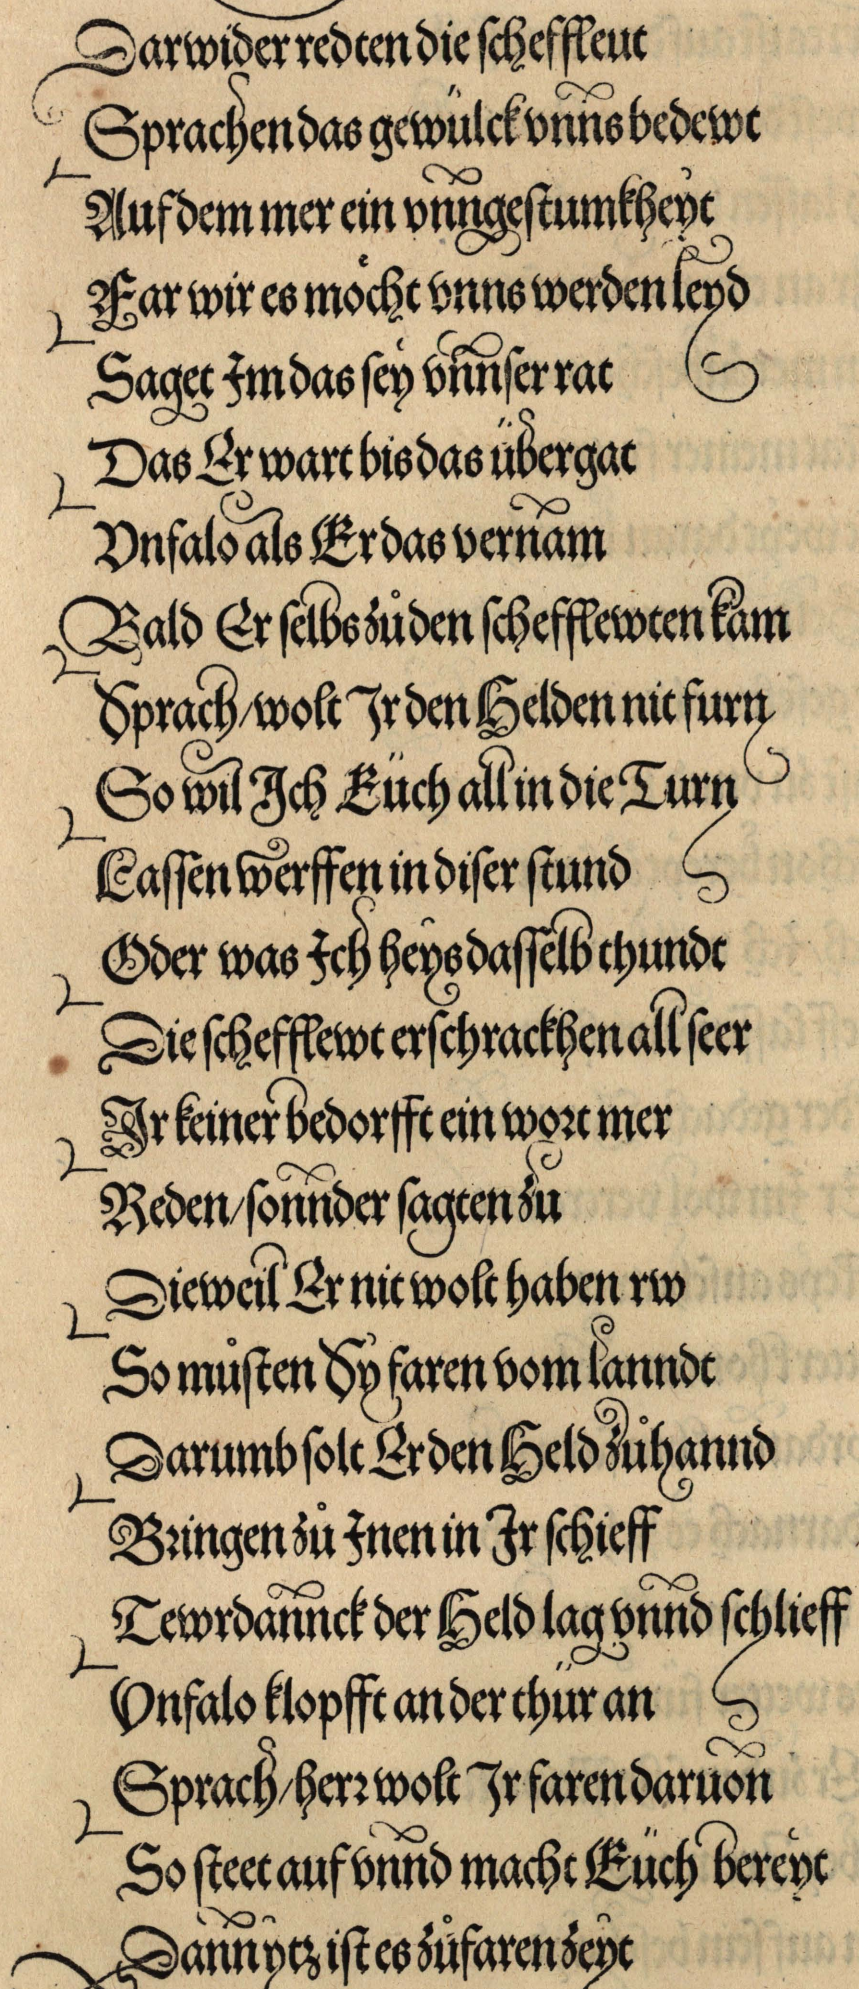 Darwider redten die scheffleut
Sprachen das gewülck vnns bedewt
Auf dem mer ein vnngestumkheyt
Far wir es möcht vnns werden leyd
Saget Im das sey vnnser rat
Das Er wart bis das übergat
Vnfalo als Er das vernam
Bald Er selbs zů den schefflewten kam
Sprach/wolt Ir den Helden nit furn
So wil Ich Eüch all in die Turn
Lassen werffen in diser stund
Oder was Ich heys dasselb thundt
Die schefflewt erschrackhen all seer
Ir keiner bedorfft ein wort mer
Reden/sonnder sagten zu
Dieweil Er nit wolt haben rw
So můsten Sy faren vom lanndt
Darumb solt Er den Held zůhannd
Bringen zů Inen in Ir schieff
Tewrdannck der Held lag vnnd schlieff
Vnfalo klopfft an der thür an
Sprach/herr wolt Ir faren daruon
So steet auf vnnd macht Eüch bereyt
Dann ytz ist es zůfaren zeyt